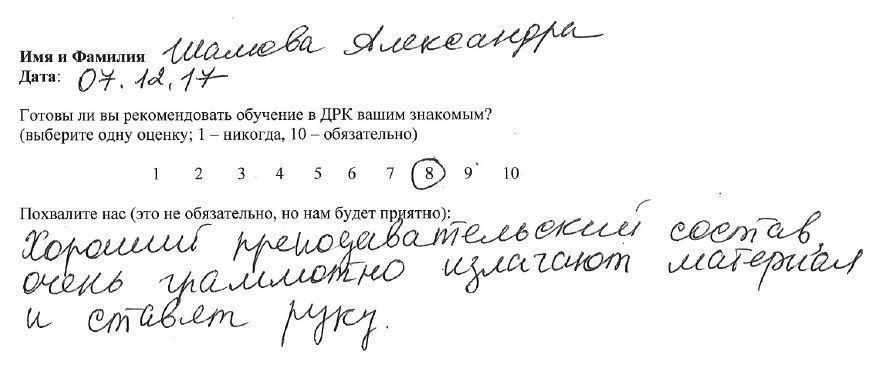 Имя и Фамилия Шамова Александра
Дата: 07.12.17
Готовы ли вы рекомендовать обучение в ДРК вашим знакомым?
(выберите одну оценку; 1 – никогда, 10 – обязательно)
1 2 3 4 5 6 7 8 9 10
Похвалите нас (это не обязательно, но нам будет приятно):
Хороший преподавательский состав,
очень граммотно излагают материал
и ставят руку.